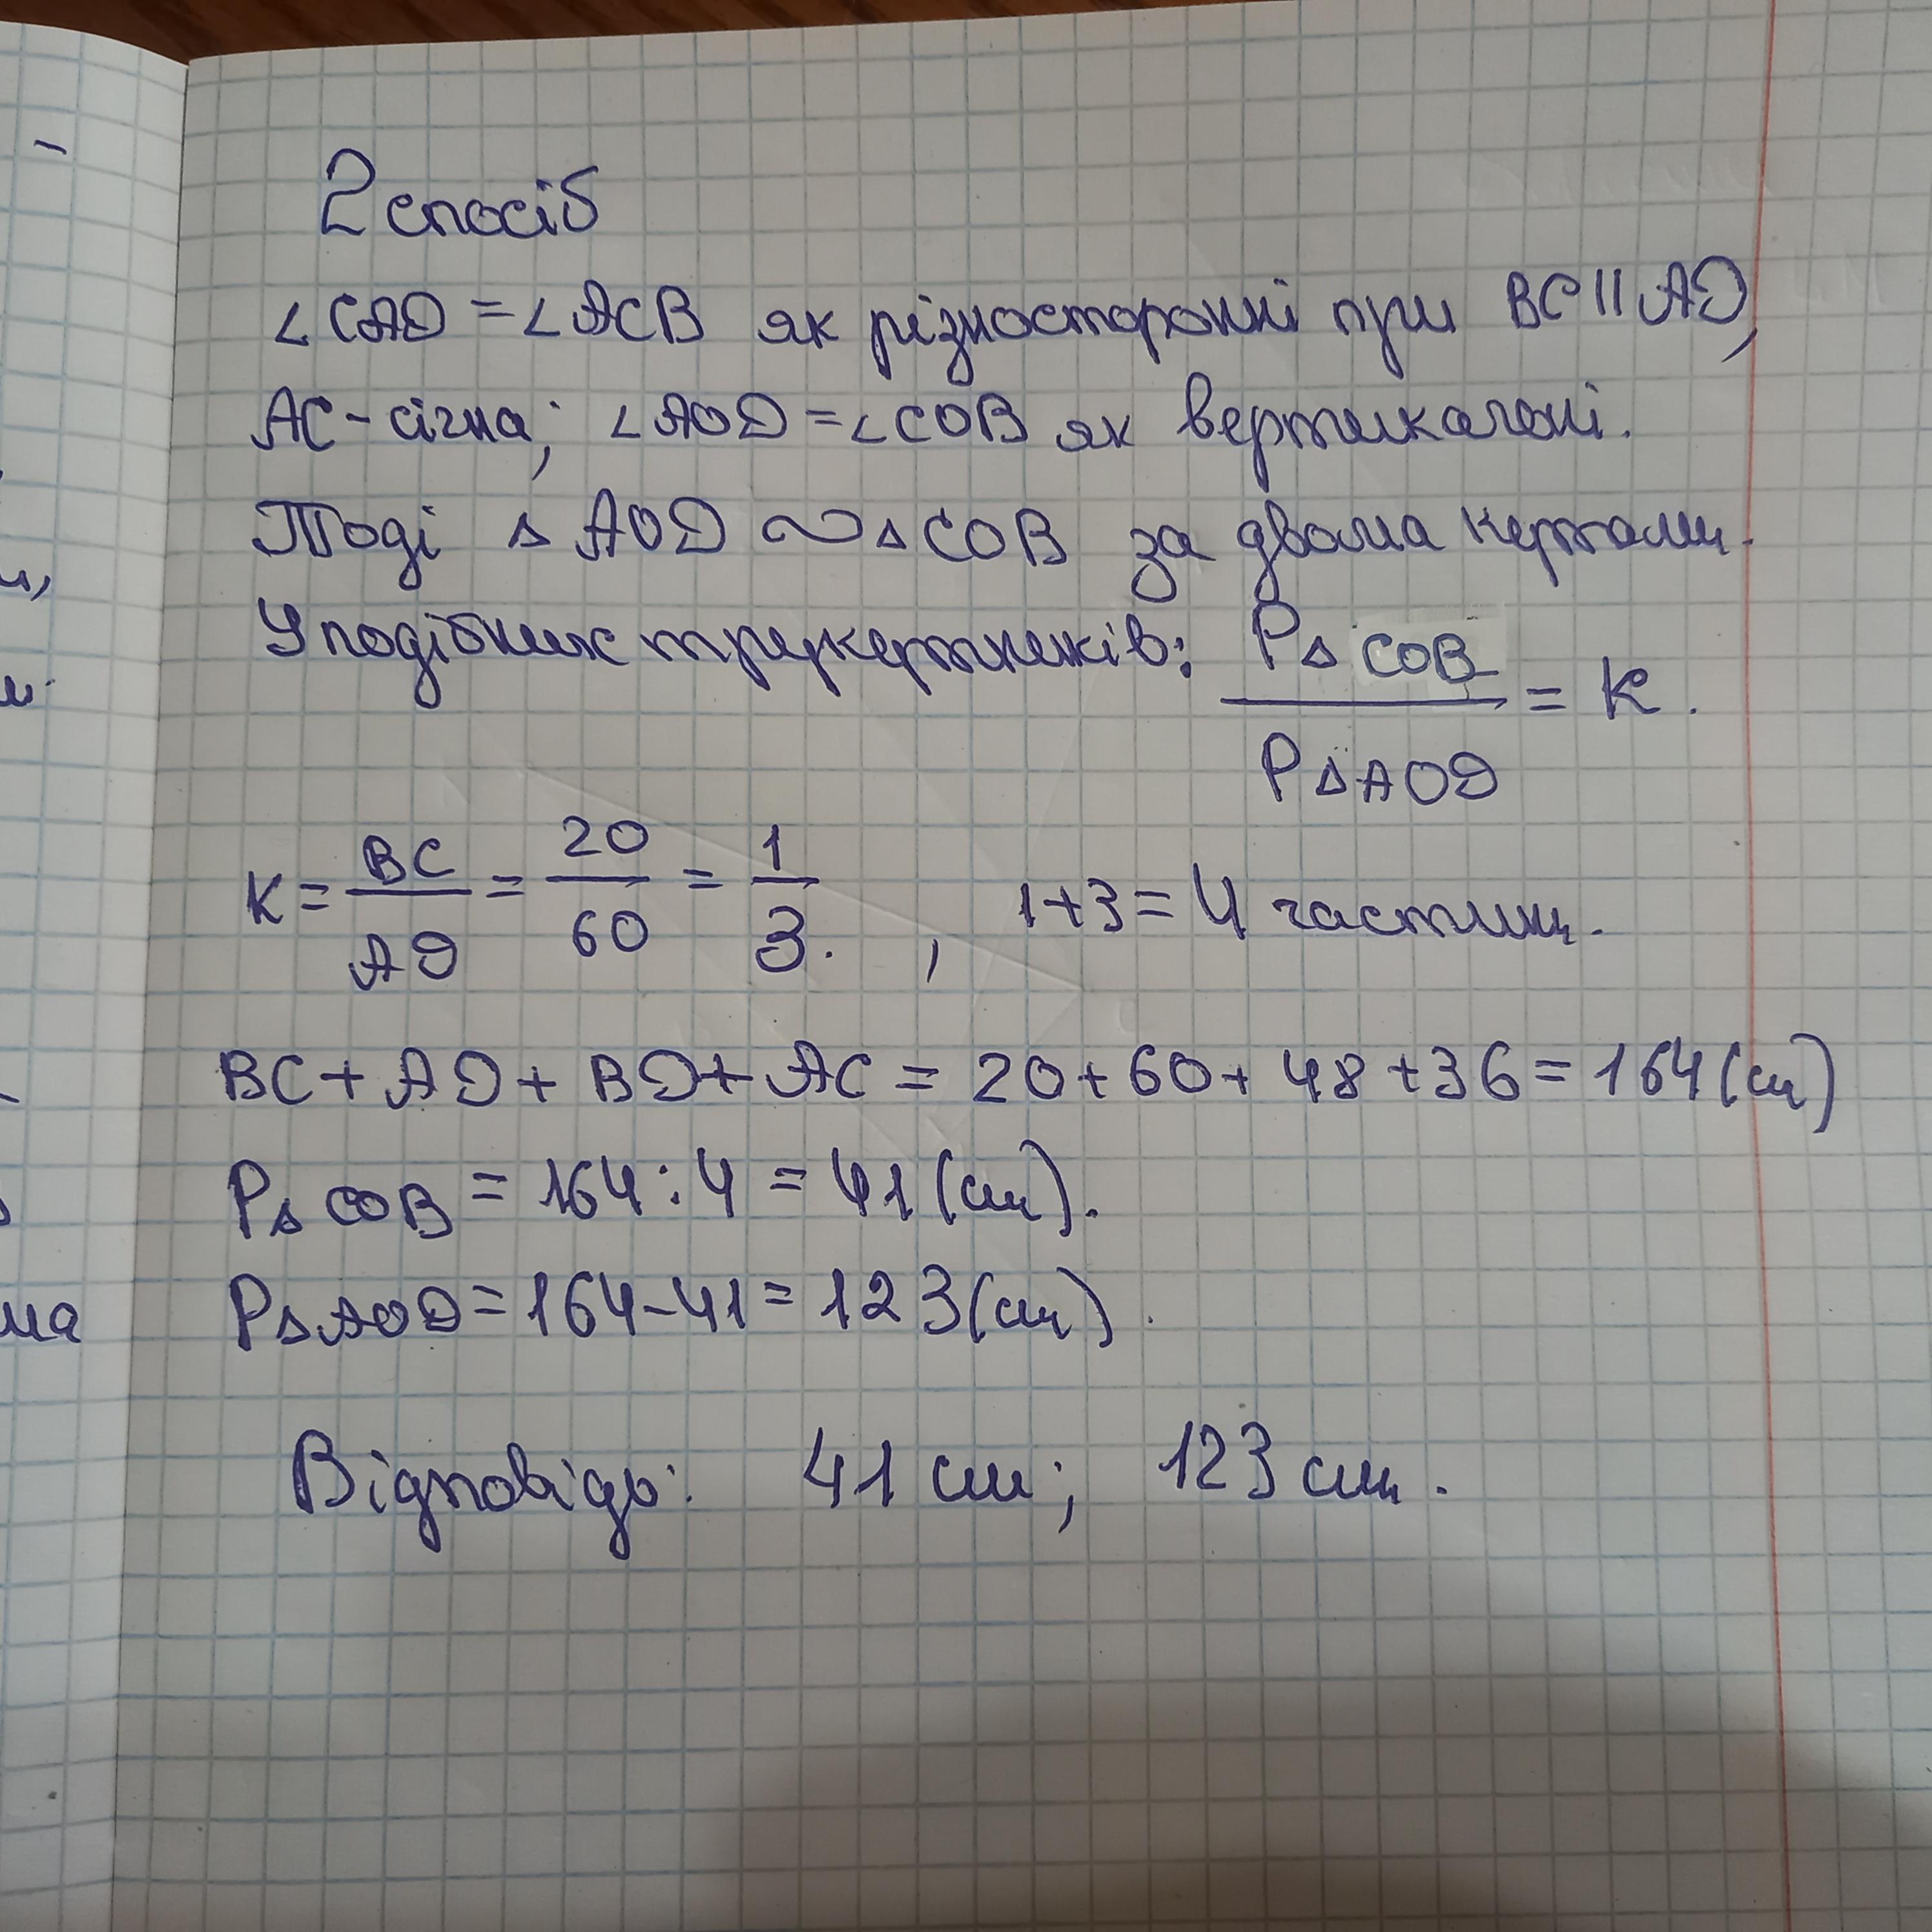 2 спосіб
∠CAD = ∠ACB як різносторонні при BC || AD,
AC - січна; ∠AOD = ∠COB як вертикальні.
Тоді △ AOD ∼ △ COB за двома кутами.
У подібних трикутників: P△ COB / P△ AOD = K.
K = BC / AD = 20 / 60 = 1 / 3. , 1+3 = 4 частини.
BC + AD + BD + AC = 20 + 60 + 48 + 36 = 164 (см)
P△ COB = 164 : 4 = 41 (см).
P△ AOD = 164 - 41 = 123 (см).
Відповідь: 41 см; 123 см.
ма